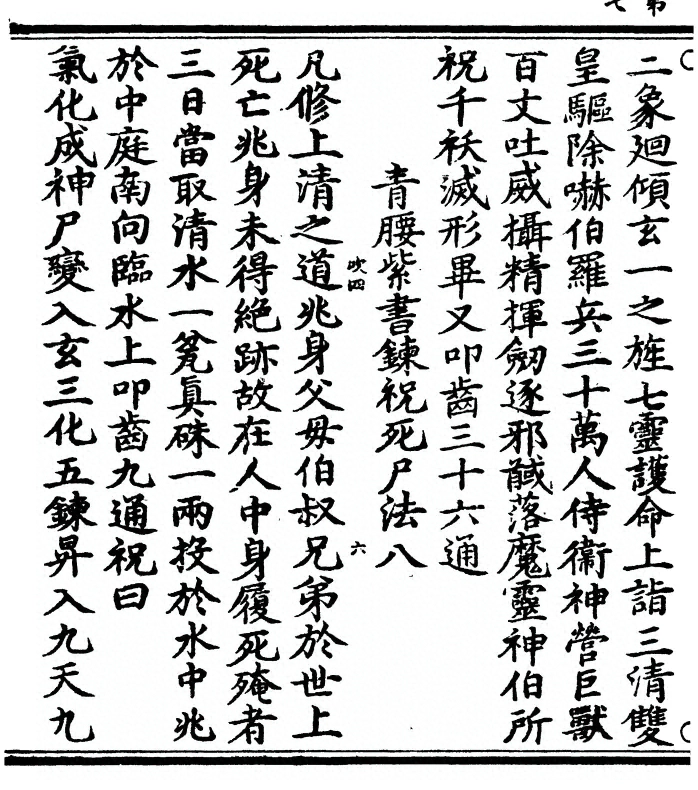 二象廻傾玄一之旌七靈護命上詣三清雙
皇驅除嚇伯羅兵三十萬人侍衞神營巨獸
百丈吐威攝精揮劒逐邪馘落魔靈神伯所
祝千袄滅形畢又叩齒三十六通
青腰紫書鍊祝死尸法八
吹四
六
凡修上清之道兆身父母伯叔兄弟於世上
死亡兆身未得絶跡故在人中身履死殗者
三日當取清水一瓮真硃一兩投於水中兆
於中庭南向臨水上叩齒九通祝曰
氣化成神尸變入玄三化五鍊昇入九天九